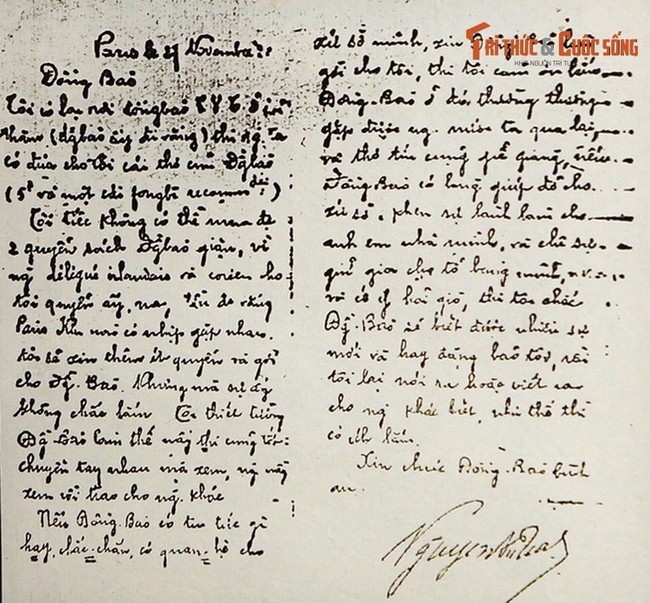 Paris le 27 Novembre
Đồng Bào
Tôi có lại nơi đồngbào
thăm (đgbào ấy đi vắng) thì
có đưa cho tôi cái thơ của Đgbào
(5ᶠ và một cái fongbì recomman dé)
Tôi tiếc không có thể mua đc
2 quyển sách Đgbào gửi, vì
ng délégué irlandais và coréen cho
tôi quyển ấy, na,
Paris khi nào có nhịp gặp nhau.
tôi sẽ xin thêm ít quyển và gởi
cho Đg. Bào. Nhưng mà sự ấy
không chắc lắm. Tôi thiết tưởng
Đg. Bào làm thế này thì cũng tốt:
chuyền tay nhau mà xem, ng này
xem rồi trao cho ng. khác
Nếu Đồng. Bào có tin tức gì
hay, chắc-chắn, có quan-hệ cho
xứ sở mình, xin
gởi cho tôi, thì tôi cám ơn lắm
Đồng-Bào ở đó thường thường
gặp được ng. mình ta qua lại,
và thơ tín cũng dễ dàng, nếu
Đồng Bào có lòng giúp đỡ cho
xứ sở, khen sự lành làm cho
anh em nhà mình, và chê sự
giữ gìn cho tổ bang mình,
và có ý hỏi giò, thì tôi chắc
Đg-Bào sẽ biết được nhiều sự
mới và hay đặng bảo tôi, rồi
tôi lại nói ra hoặc viết ra
cho ng khác biết, như thế thì
có ích lắm.
Xin chúc Đồng-Bào bình
an.
TRI THỨC & CUỘC SỐNG
KHƠI NGUỒN TRI THỨC